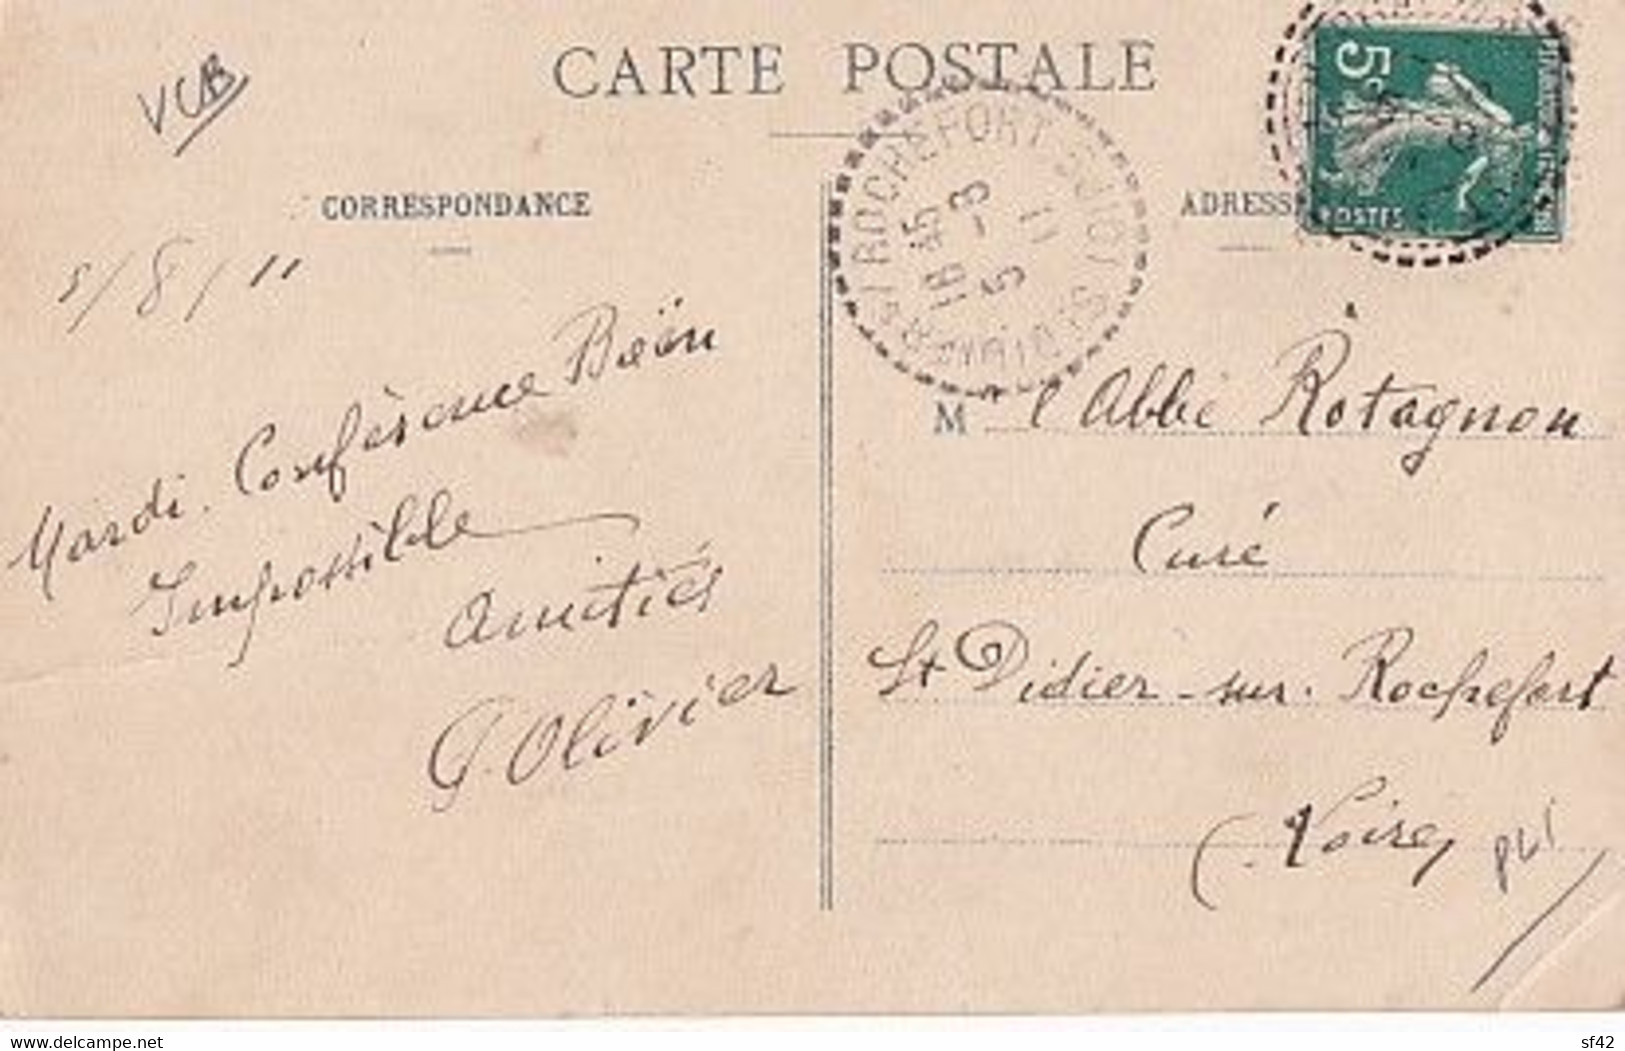 VCB
CARTE POSTALE
CORRESPONDANCE
ADRESS
5/8/11
Mardi. Conférence Boën
Impossible
Amitiés
P. Olivier
5c
POSTES
ROCHEFORT
18 45
5 - 3
11
M l'Abbé Rotagnon
Curé
St Didier-sur-Rochefort
(Loire)
PLI
www.delcampe.net
sf42